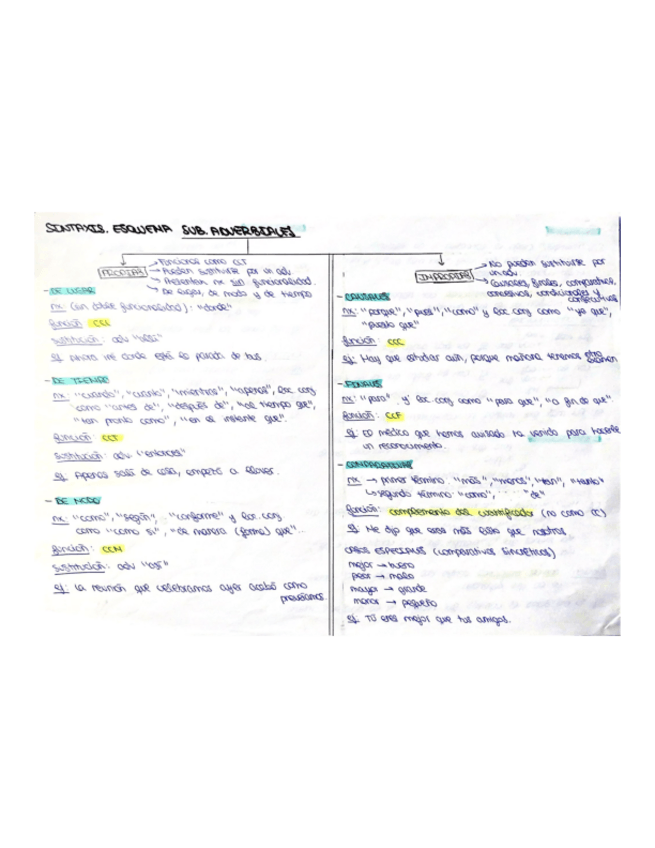 SINTAXIS. ESQUEMA SUB. ADVERBIALES
PROPIAS
→ Funcionan como CCT
→ Pueden sustituirse por un adv.
→ Presentan nx sin funcionalidad.
→ De lugar, de modo y de tiempo
- DE LUGAR
nx (sin doble funcionalidad): "donde"
función: CCL
sustitución: adv "allí"
ej: Ahora iré donde está la parada de bus.
- DE TIEMPO
nx: "cuando", "cuanto", "mientras", "apenas", loc. conj
como "antes de", "después de", "al tiempo que",
"tan pronto como", "en el instante que".
función: CCT
sustitución: adv ("entonces")
ej: Apenas salía de casa, empezó a llover.
- DE MODO
nx: "como", "según", "conforme" y loc. conj
como "como si", "de manera (forma) que"...
función: CCM
sustitución: adv "así"
ej: La reunión que celebramos ayer acabó como
preveíamos.
IMPROPIAS
→ No pueden sustituirse por
un adv.
→ Causales, finales, comparativas,
concesivas, condicionales y
consecutivas
- CAUSALES
nx: "porque", "pues", "como" y loc conj como "ya que",
"puesto que"
función: CCC
ej: Hay que estudiar aún, porque mañana tenemos otro
examen
- FINALES
nx: "para" y loc. conj como "para que", "a fin de que"
función: CCF
ej: El médico que hemos avisado ha venido para hacerte
un reconocimiento.
- COMPARATIVAS
nx → primer término: "más", "menos", "tan", "tanto"
↳ segundo término: "como", "de"
función: complemento del cuantificador (no como CC)
ej: Me dijo que era más lista que nosotras.
casos especiales (comparativos sincréticos)
mejor → bueno
peor → malo
mayor → grande
menor → pequeño
ej: Tú eres mejor que tus amigos.